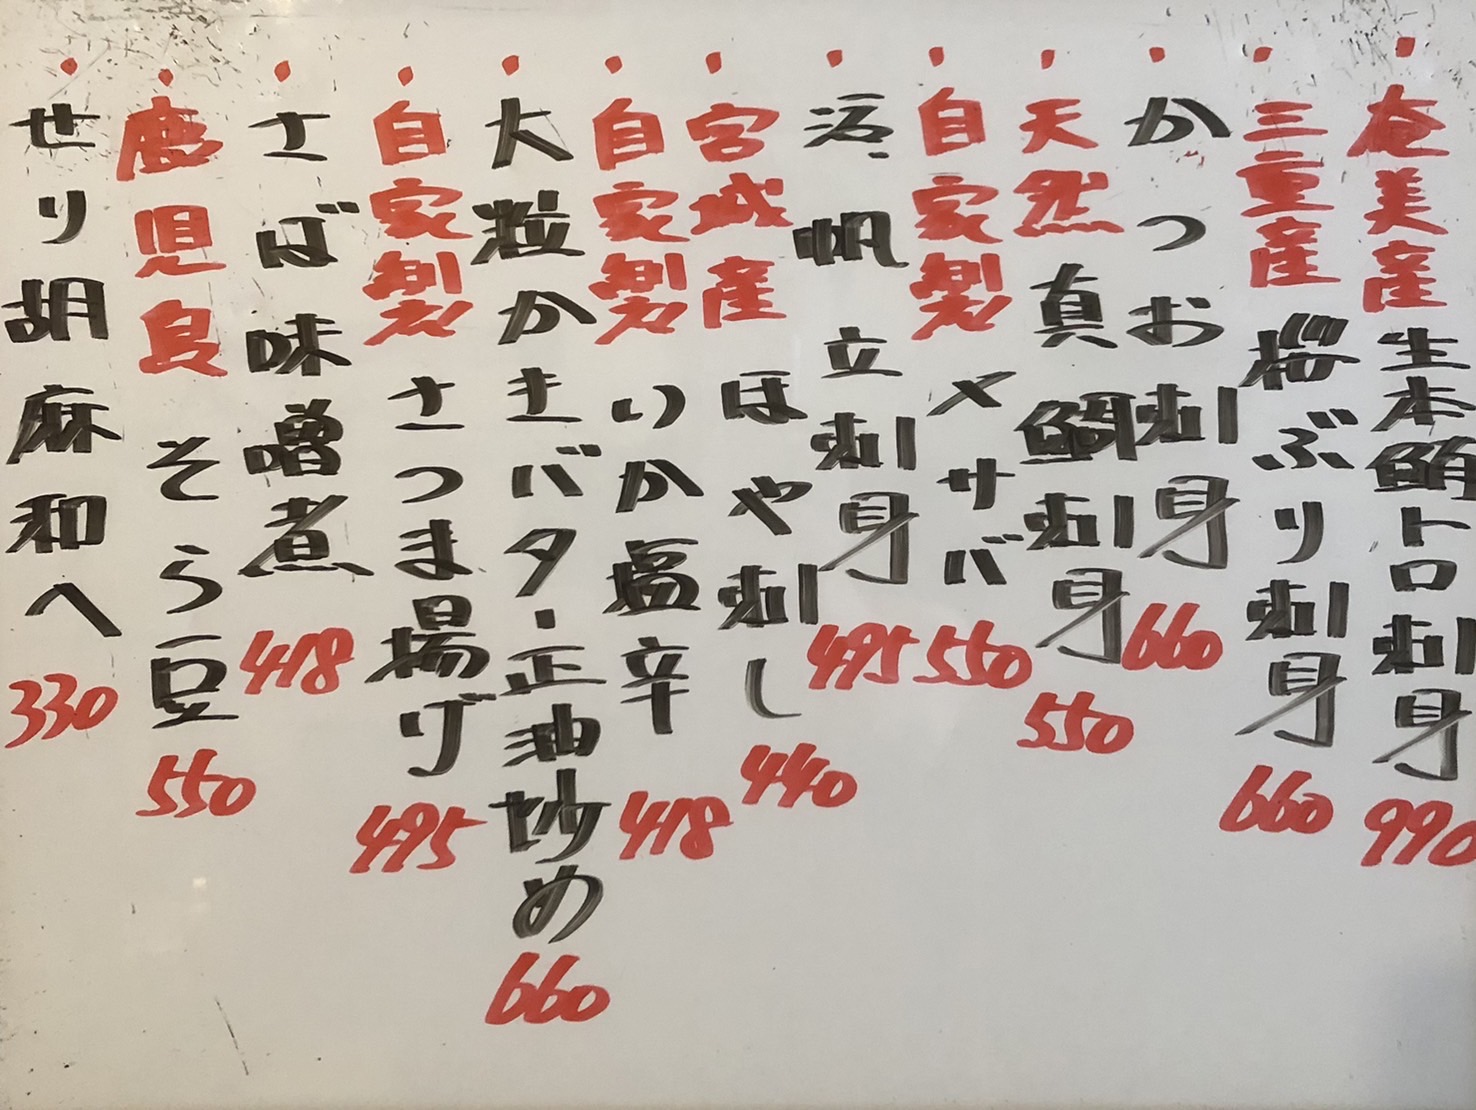 ・奄美産生本鮪トロ刺身990
・三重産桜ぶり刺身660
・かつお刺身660
・天然真鯛刺身550
・自家製〆サバ550
・活帆立刺身495
・宮城産ほや刺し440
・自家製いか塩辛418
・大粒かきバター正油炒め660
・自家製さつま揚げ495
・さば味噌煮418
・鹿児島そら豆550
・せり胡麻和へ330